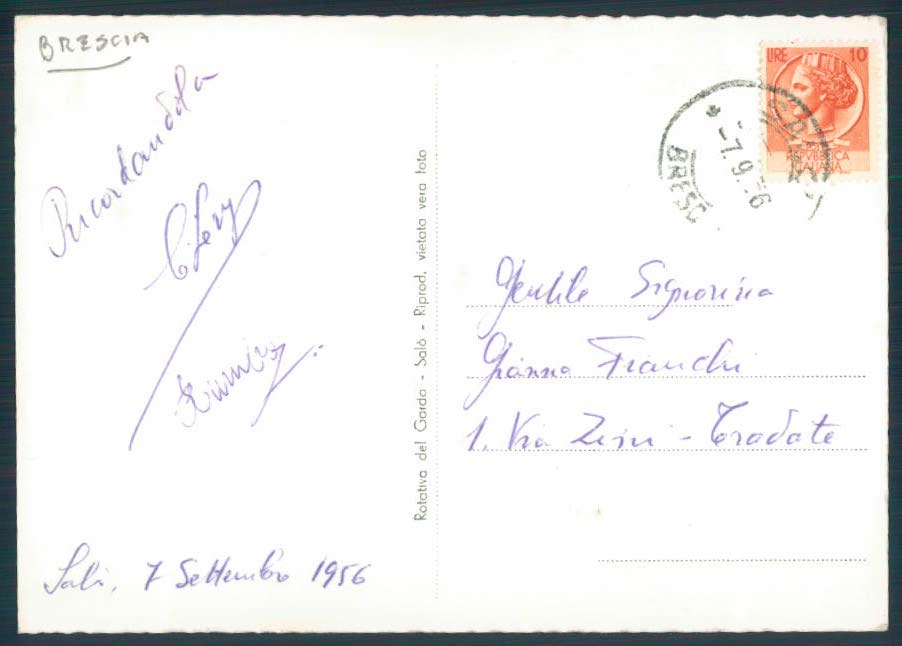 BRESCIA
Ricordandola
Salò, 7 Settembre 1956
Rotativa del Garda - Salò - Riprod. vietata vera foto
LIRE 10
REPVBBLICA
ITALIANA
-7.9.56
BRESC
Gentile Signorina
Gianna Franchi
1. Via Zeini - Tradate